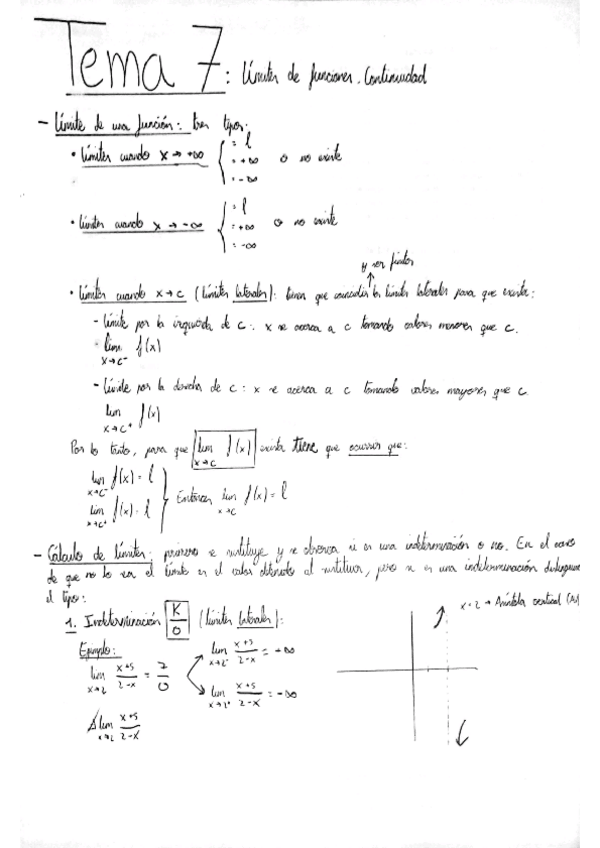 Tema 7: Límites de funciones. Continuidad
- Límite de una función: tres tipos:
• Límites cuando x → +∞ { = l
= +∞ o no existe
= -∞
• Límites cuando x → -∞ { = l
= +∞ o no existe
= -∞
y ser finitos
• Límites cuando x → c (límites laterales): tienen que coincidir los límites laterales para que exista:
- Límite por la izquierda de c: x se acerca a c tomando valores menores que c.
lim f(x)
x→c⁻
- Límite por la derecha de c: x se acerca a c tomando valores mayores que c
lim f(x)
x→c⁺
Por lo tanto, para que lim f(x) exista tiene que ocurrir que:
x→c
lim f(x) = l
x→c⁻
lim f(x) = l } Entonces lim f(x) = l
x→c⁺ x→c
- Cálculo de límites: primero se sustituye y se observa si es una indeterminación o no. En el caso
de que no lo sea el límite es el valor obtenido al sustituir, pero si es una indeterminación
el tipo:
x=2 → Asíntota vertical
1. Indeterminación K/0 (límites laterales):
Ejemplo:
lim x+5/2-x = 7/0
x→2
lim x+5/2-x = +∞
x→2⁻
lim x+5/2-x = -∞
x→2⁺
∄ lim x+5/2-x
x→2